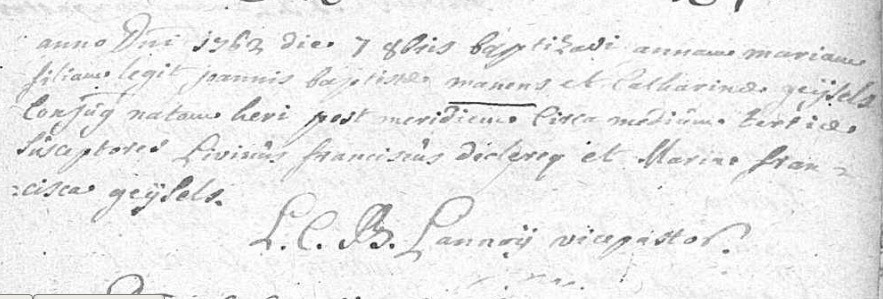 anno Dni 1762 die 7 8bris baptizavi annam mariam
filiam legit joannis baptistæ manens et Catharinæ geÿsels
Conjug natam heri post meridiem Circa mediam tertiæ
Susceptores Livinus franciscus declercq et Maria fran=
=cisca geÿsels.
L. C. B. Lannoÿ vicepastor.